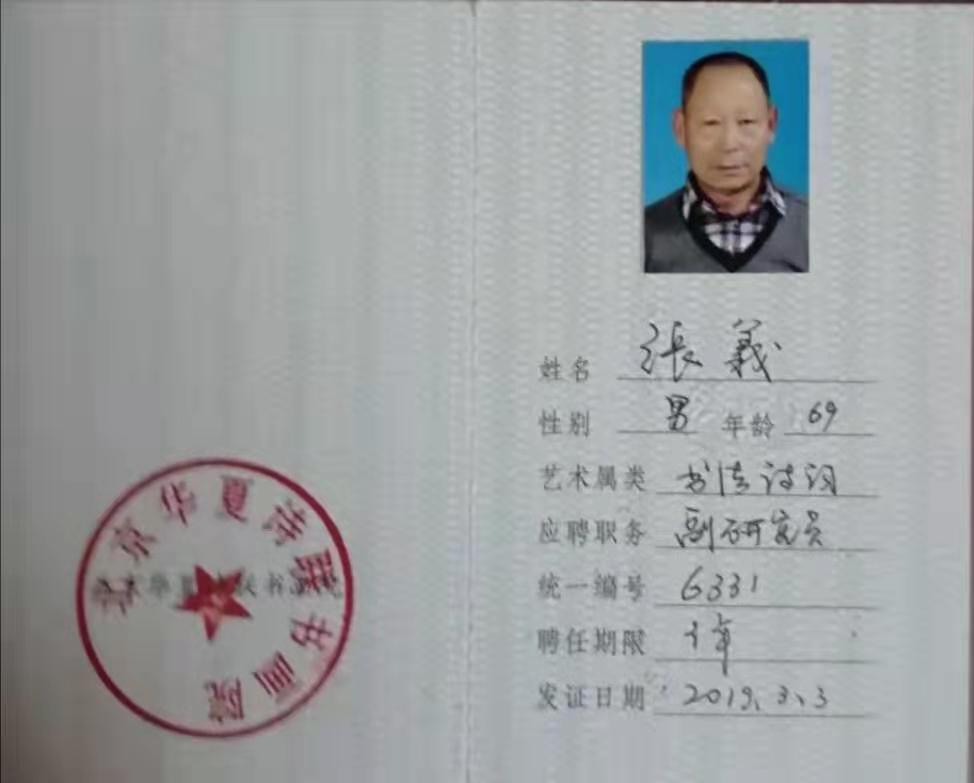 北京华夏诗联书画院
姓名 張義
性别 男 年龄 69
艺术属类 书法诗词
应聘职务 副研究员
统一编号 6331
聘任期限 十年
发证日期 2019.3.3